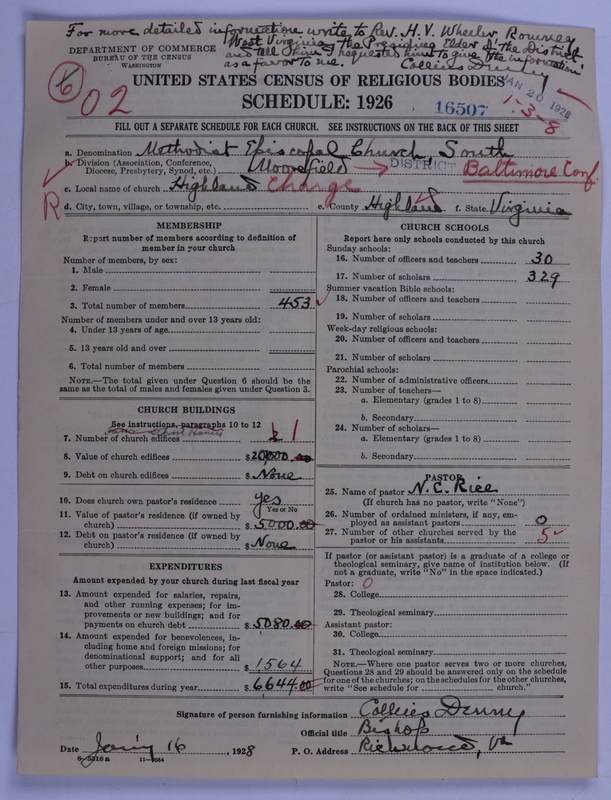 For more detailed information write to Rev. H. V. Wheeler Romney
West Virginia, the Presiding Elder of the District
and tell him I requested him to give the information
as a favor to me. Collins Denny
DEPARTMENT OF COMMERCE
BUREAU OF THE CENSUS
WASHINGTON
JAN 20 1928
6
02
1-3-8
UNITED STATES CENSUS OF RELIGIOUS BODIES
SCHEDULE: 1926
16507
FILL OUT A SEPARATE SCHEDULE FOR EACH CHURCH. SEE INSTRUCTIONS ON THE BACK OF THIS SHEET
a. Denomination Methodist Episcopal Church, South
b. Division (Association, Conference, Diocese, Presbytery, Synod, etc.) Moorefield DISTRICT Baltimore Conf
c. Local name of church Highland Charge
R
d. City, town, village, or township, etc. e. County Highland f. State Virginia
MEMBERSHIP
Report number of members according to definition of
member in your church
Number of members, by sex:
1. Male
2. Female
3. Total number of members 453
Number of members under and over 13 years old:
4. Under 13 years of age
5. 13 years old and over
6. Total number of members
NOTE.—The total given under Question 6 should be the
same as the total of males and females given under Question 3.
CHURCH BUILDINGS
See instructions, paragraphs 10 to 12
7. Number of church edifices 1
8. Value of church edifices $20,000.00
9. Debt on church edifices $None
10. Does church own pastor's residence yes
Yes or No
11. Value of pastor's residence (if owned by
church) $5000.00
12. Debt on pastor's residence (if owned by
church) $None
EXPENDITURES
Amount expended by your church during last fiscal year
13. Amount expended for salaries, repairs,
and other running expenses; for im-
provements or new buildings; and for
payments on church debt $5080.00
14. Amount expended for benevolences, in-
cluding home and foreign missions; for
denominational support; and for all
other purposes $1564
15. Total expenditures during year $6644.00
CHURCH SCHOOLS
Report here only schools conducted by this church
Sunday schools:
16. Number of officers and teachers 30
17. Number of scholars 329
Summer vacation Bible schools:
18. Number of officers and teachers
19. Number of scholars
Week-day religious schools:
20. Number of officers and teachers
21. Number of scholars
Parochial schools:
22. Number of administrative officers
23. Number of teachers—
a. Elementary (grades 1 to 8)
b. Secondary
24. Number of scholars—
a. Elementary (grades 1 to 8)
b. Secondary
PASTOR
25. Name of pastor N. C. Rice
(If church has no pastor, write "None")
26. Number of ordained ministers, if any, em-
ployed as assistant pastors 0
27. Number of other churches served by the
pastor or his assistants 5
If pastor (or assistant pastor) is a graduate of a college or
theological seminary, give name of institution below. (If
not a graduate, write "No" in the space indicated.)
Pastor: 0
28. College
29. Theological seminary
Assistant pastor:
30. College
31. Theological seminary
NOTE.—Where one pastor serves two or more churches,
Questions 28 and 29 should be answered only on the schedule
for one of the churches; on the schedules for the other churches,
write "See schedule for church."
Signature of person furnishing information Collins Denny
Official title Bishop
Date Jany 16, 1928 P. O. Address Richmond, Va
8-5518 a 11-9264